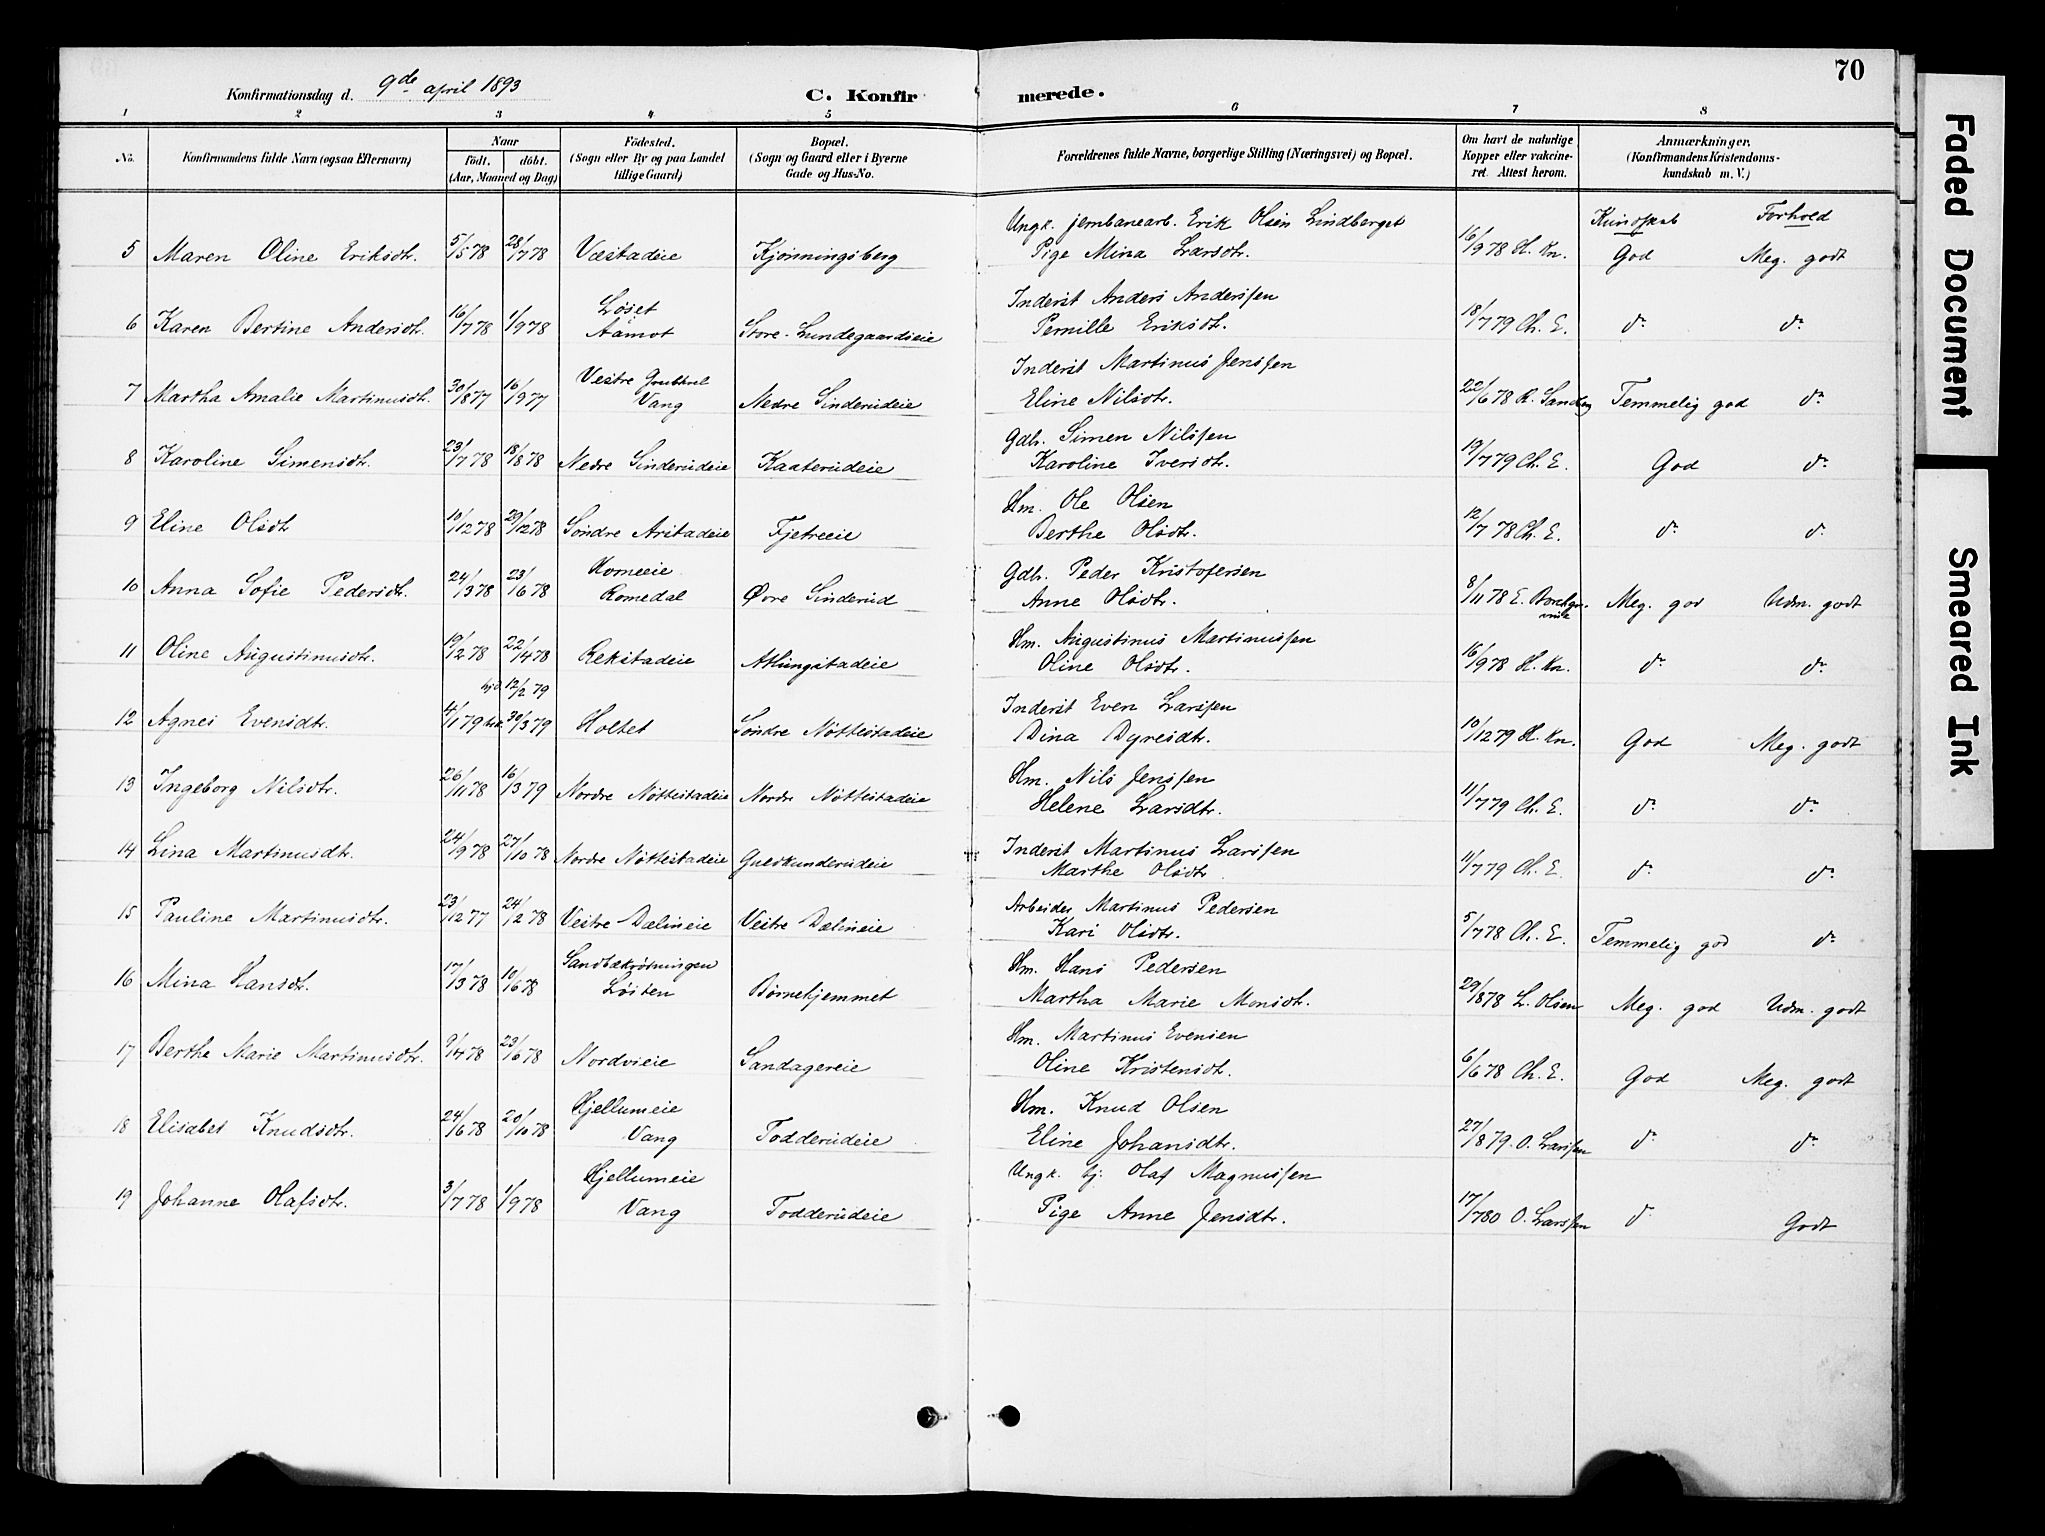 70
Konfirmationsdag d. 9de april 1893
C. Konfirmerede.
1 2 3 4 5 6 7 8
No.
Konfirmandens fulde Navn (ogsaa Efternavn)
Naar
födt. döbt.
(Aar, Maaned og Dag)
Födested.
(Sogn eller By og paa Landet
tillige Gaard)
Bopæl.
(Sogn og Gaard eller i Byerne
Gade og Hus-No.
Forældrenes fulde Navne, borgerlige Stilling (Næringsvei) og Bopæl.
Om havt de naturlige
Kopper eller vakcine-
ret. Attest herom.
Anmærkninger.
(Konfirmandens Kristendoms-
kundskab m. V.)
Kundskab Forhold
Ungk. jernbanearb. Erik Olsen Lindberget
5 Maren Oline Eriksdtr. 5/5 78 28/7 78 Væstadeie Kjönningsberg Pige Mina Larsdtr. 16/9 78 H. Kn. God Meg. godt
Löset Inderst Anders Anderssen
6 Karen Bertine Andersdtr. 16/7 78 1/9 78 Aamot Store-Lundegaardseie Pernille Eriksdtr. 18/7 79 Ch. E. do do
Vestre Inderst Martinus Jenssen
7 Martha Amalie Martinusdtr. 30/8 77 16/9 77 Vang Nedre Sinderudeie Eline Nilsdtr. 22/6 78 Temmelig god do
Gdb. Simen Nilssen
8 Karoline Simensdtr. 23/7 78 18/8 78 Nedre Sinderudeie Kaaterudeie Karoline Iversdtr. 19/7 79 Ch. E. God do
Hm. Ole Olsen
9 Eline Olsdtr 10/12 78 29/12 78 Söndre Aristadeie Fjetreeie Berthe Olsdtr. 12/7 78 Ch. E. do do
Horneeie Gdb. Peder Kristofersen
10 Anna Sofie Pedersdtr. 24/3 78 23/6 78 Romedal Övre Sinderud Anne Olsdtr. 8/11 78 E. Meg. god Udm. godt
Hm. Augustinus Martinussen
11 Oline Augustinusdtr. 19/2 78 22/4 78 Rekstadeie Atlungstadeie Oline Olsdtr. 16/9 78 H. Kn. do do
hjd. 12/2 79 Inderst Even Larssen
12 Agnes Evensdtr. 4/1 79 bek. 30/3 79 Holtet Söndre Nöttestadeie Dina Dyresdtr. 10/12 79 H. Kn. God Meg. godt
Hm. Nils Jenssen
13 Ingeborg Nilsdtr. 26/11 78 16/3 79 Nordre Nöttestadeie Nordre Nöttestadeie Helene Larsdtr. 11/7 79 Ch. E. do do
Inderst Martinus Larssen
14 Lina Martinusdtr. 24/9 78 27/10 78 Nordre Nöttestadeie Gudkunderudeie Marthe Olsdtr 11/7 79 Ch. E. do do
Arbeider Martinus Pedersen
15 Pauline Martinusdtr. 23/12 77 24/2 78 Vestre Dælineie Vestre Dælineie Kari Olsdtr. 5/7 78 Ch. E. Temmelig god do
Sandbækrösningen Hm. Hans Pedersen
16 Mina Hansdtr. 17/3 78 10/6 78 Löiten Börnehjemmet Martha Marie Monsdtr. 29/8 78 L. Olsen Meg. god Udm. godt
Hm. Martinus Evensen
17 Berthe Marie Martinusdtr. 9/4 78 23/6 78 Nordvieie Sandagereie Oline Kristensdtr. 6/6 78 Ch. E. God Meg. godt
Hjellumeie Hm. Knud Olsen
18 Elisabet Knudsdtr. 24/6 78 20/10 78 Vang Todderudeie Eline Johansdtr. 27/8 79 O. Larssen do do
Hjellumeie Ungk. tj. Olaf Magnussen
19 Johanne Olafsdtr. 3/7 78 1/9 78 Vang Todderudeie Pige Anne Jensdtr. 17/7 80 O. Larssen do Godt
Faded Document
Smeared Ink